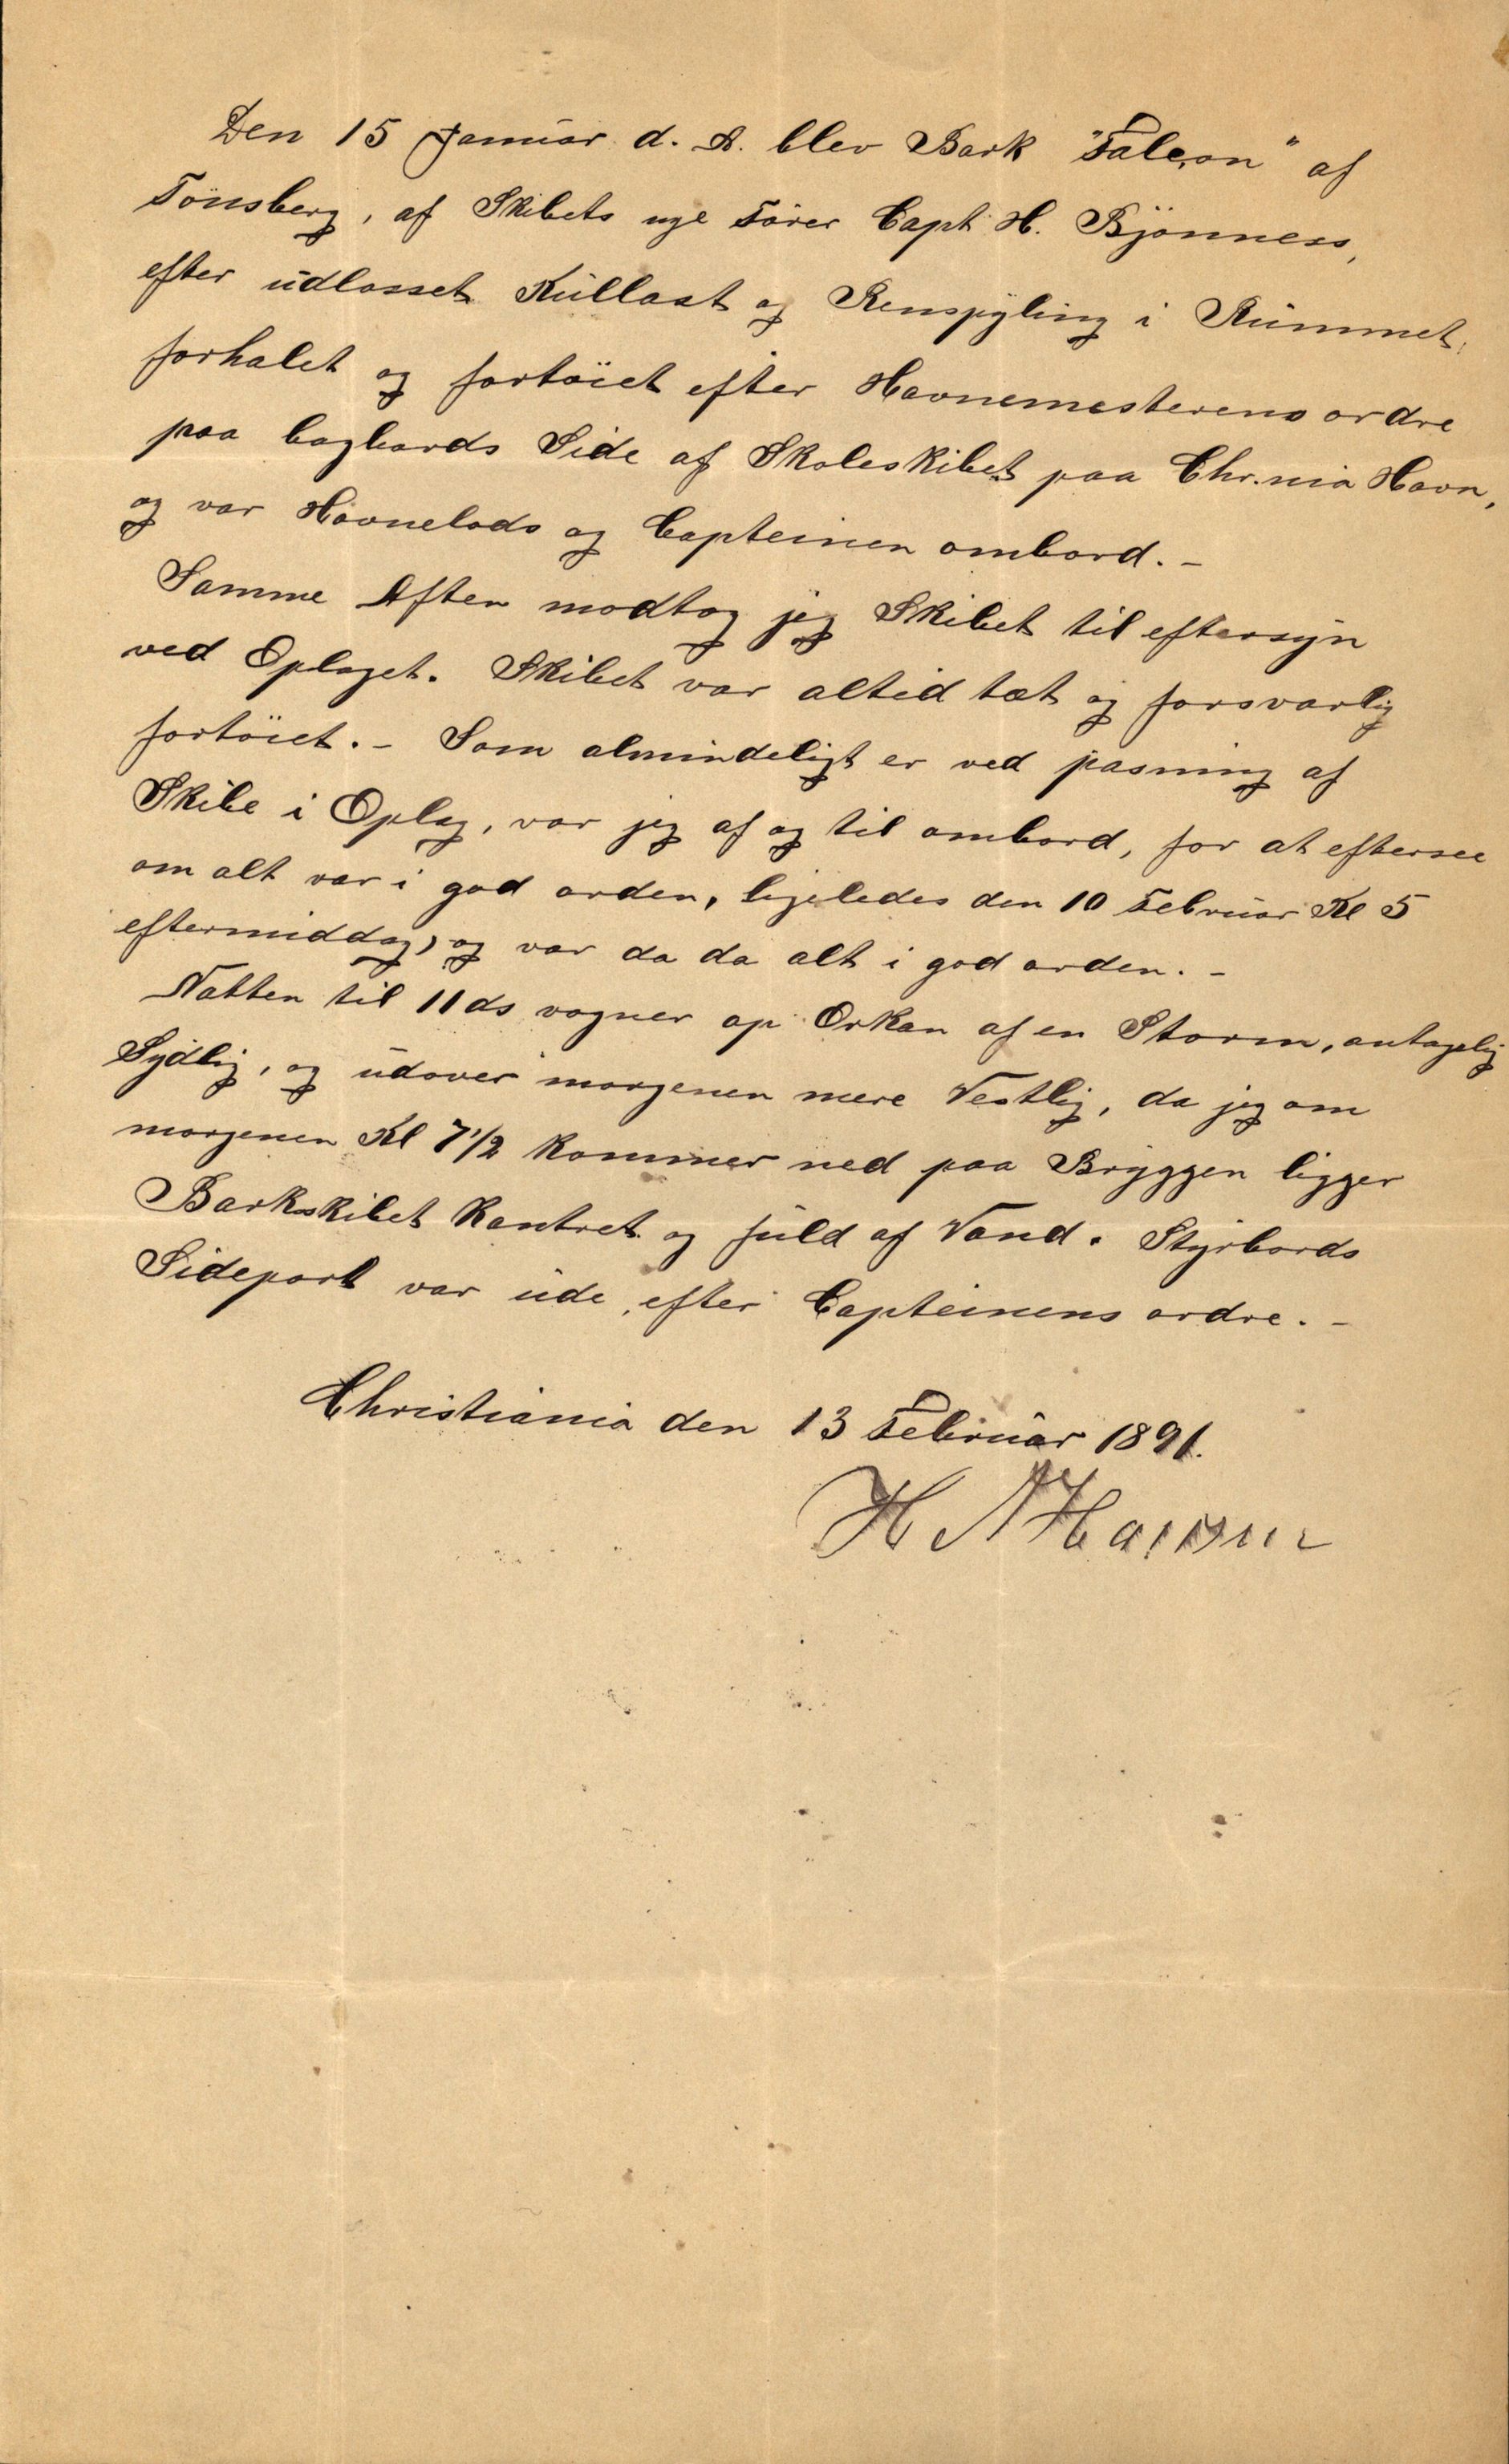 Den 15 Januar d. A. blev Bark "Falcon" af
Tönsberg, af Skibets nye Förer Capt. H. Bjönness,
efter udlosset Kullast og Renspyling i Rummet,
forhalet og fortöiet efter Havnemesterens ordre
paa bagbords Side af Skoleskibet paa Chr.nia Havn,
og var Havnelods og Capteinen ombord. -
Samme Aften modtog jeg Skibet til eftersyn
ved Oplaget. Skibet var altid tæt og forsvarlig
fortöiet. - Som almindeligt er ved pasning af
Skibe i Oplag, var jeg af og til ombord, for at eftersee
om alt var i god orden, ligeledes den 10 Februar Kl 5
eftermiddag, og var da da alt i god orden. -
Natten til 11 ds vogner op Orkan af en Storm, antagelig
Sydlig, og udover morgenen mere Vestlig, da jeg om
morgenen Kl 7 1/2 kommer ned paa Bryggen ligger
Barkskibet kantret og fuld af Vand. Styrbords
Sideport var ude, efter Capteinens ordre. -
Christiania den 13 Februar 1891.
H N Hansen